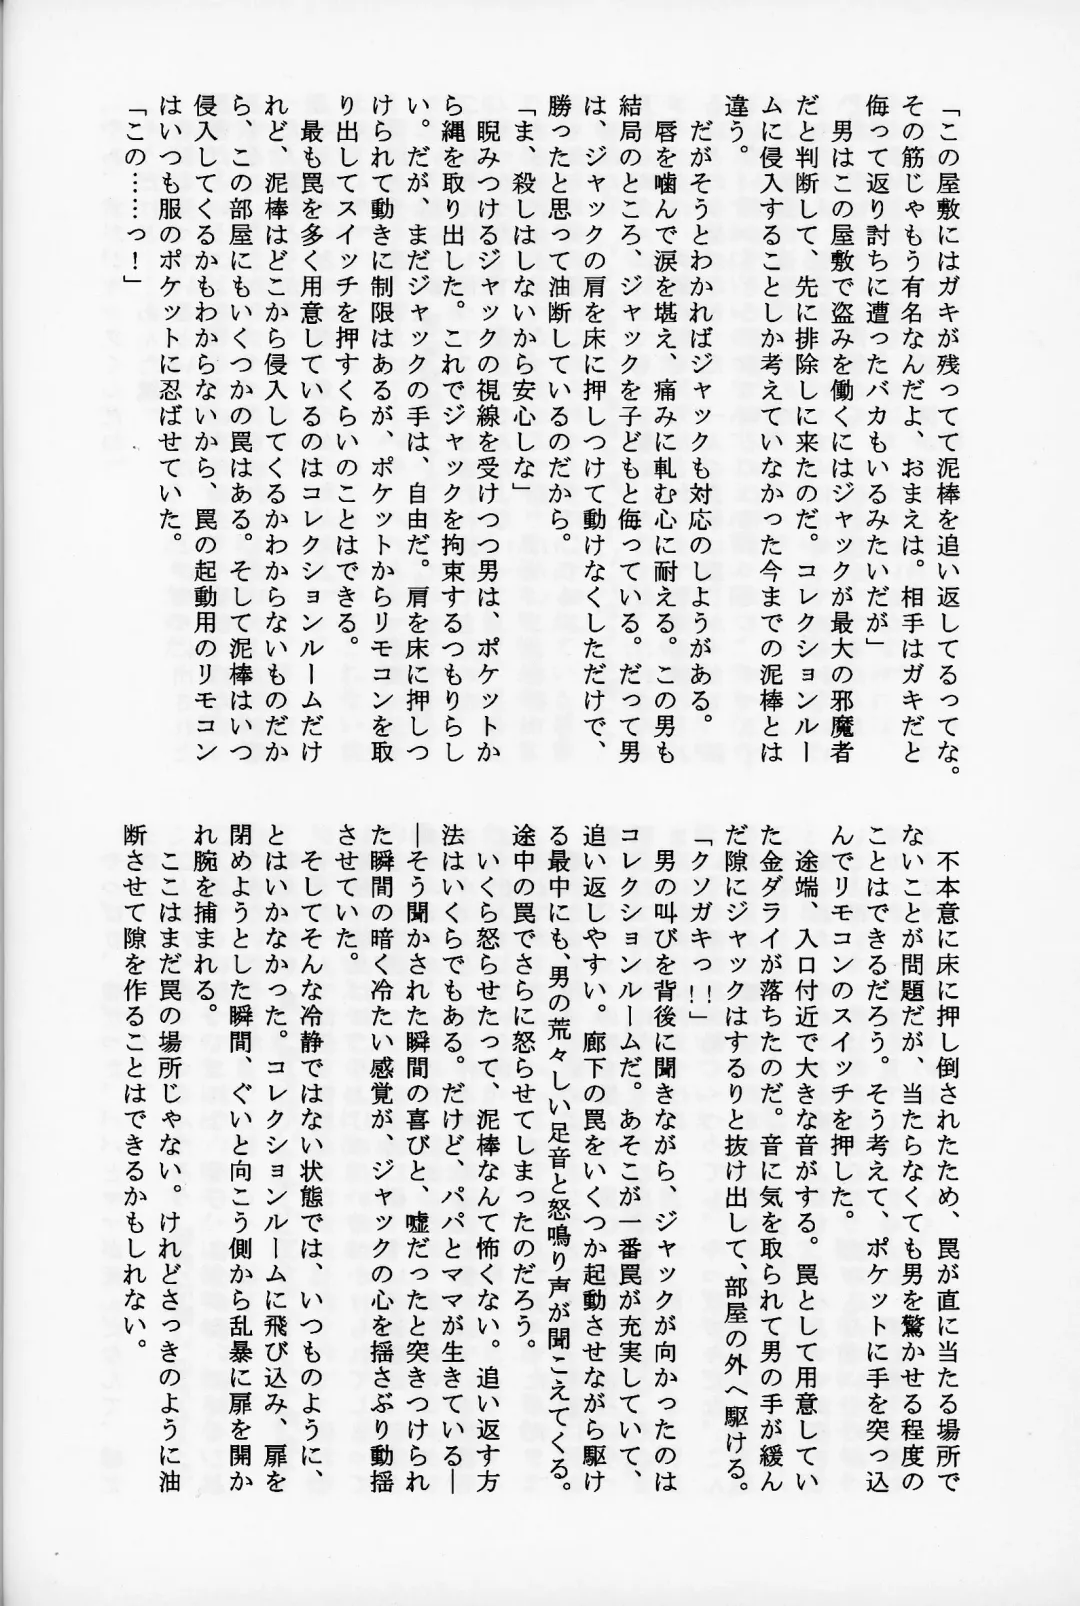 「この屋敷にはガキが残ってて泥棒を追い返してるってな。
その筋じゃもう有名なんだよ、おまえは。相手はガキだと
侮って返り討ちに遭ったバカもいるみたいだが」
　男はこの屋敷で盗みを働くにはジャックが最大の邪魔者
だと判断して、先に排除しに来たのだ。コレクションルー
ムに侵入することしか考えていなかった今までの泥棒とは
違う。
　だがそうとわかればジャックも対応のしようがある。
　唇を噛んで涙を堪え、痛みに軋む心に耐える。この男も
結局のところ、ジャックを子どもと侮っている。だって男
は、ジャックの肩を床に押しつけて動けなくしただけで、
勝ったと思って油断しているのだから。
「ま、殺しはしないから安心しな」
　睨みつけるジャックの視線を受けつつ男は、ポケットか
ら縄を取り出した。これでジャックを拘束するつもりらし
い。だが、まだジャックの手は、自由だ。肩を床に押しつ
けられて動きに制限はあるが、ポケットからリモコンを取
り出してスイッチを押すくらいのことはできる。
　最も罠を多く用意しているのはコレクションルームだけ
れど、泥棒はどこから侵入してくるかわからないものだか
ら、この部屋にもいくつかの罠はある。そして泥棒はいつ
侵入してくるかもわからないから、罠の起動用のリモコン
はいつも服のポケットに忍ばせていた。
「この……っ！」
　不本意に床に押し倒されたため、罠が直に当たる場所で
ないことが問題だが、当たらなくても男を驚かせる程度の
ことはできるだろう。そう考えて、ポケットに手を突っ込
んでリモコンのスイッチを押した。
　途端、入口付近で大きな音がする。罠として用意してい
た金ダライが落ちたのだ。音に気を取られて男の手が緩ん
だ隙にジャックはするりと抜け出して、部屋の外へ駆ける。
「クソガキっ！！」
　男の叫びを背後に聞きながら、ジャックが向かったのは
コレクションルームだ。あそこが一番罠が充実していて、
追い返しやすい。廊下の罠をいくつか起動させながら駆け
る最中にも、男の荒々しい足音と怒鳴り声が聞こえてくる。
途中の罠でさらに怒らせてしまったのだろう。
　いくら怒らせたって、泥棒なんて怖くない。追い返す方
法はいくらでもある。だけど、パパとママが生きている―
―そう聞かされた瞬間の喜びと、嘘だったと突きつけられ
た瞬間の暗く冷たい感覚が、ジャックの心を揺さぶり動揺
させていた。
　そしてそんな冷静ではない状態では、いつものように、
とはいかなかった。コレクションルームに飛び込み、扉を
閉めようとした瞬間、ぐいと向こう側から乱暴に扉を開か
れ腕を捕まれる。
　ここはまだ罠の場所じゃない。けれどさっきのように油
断させて隙を作ることはできるかもしれない。